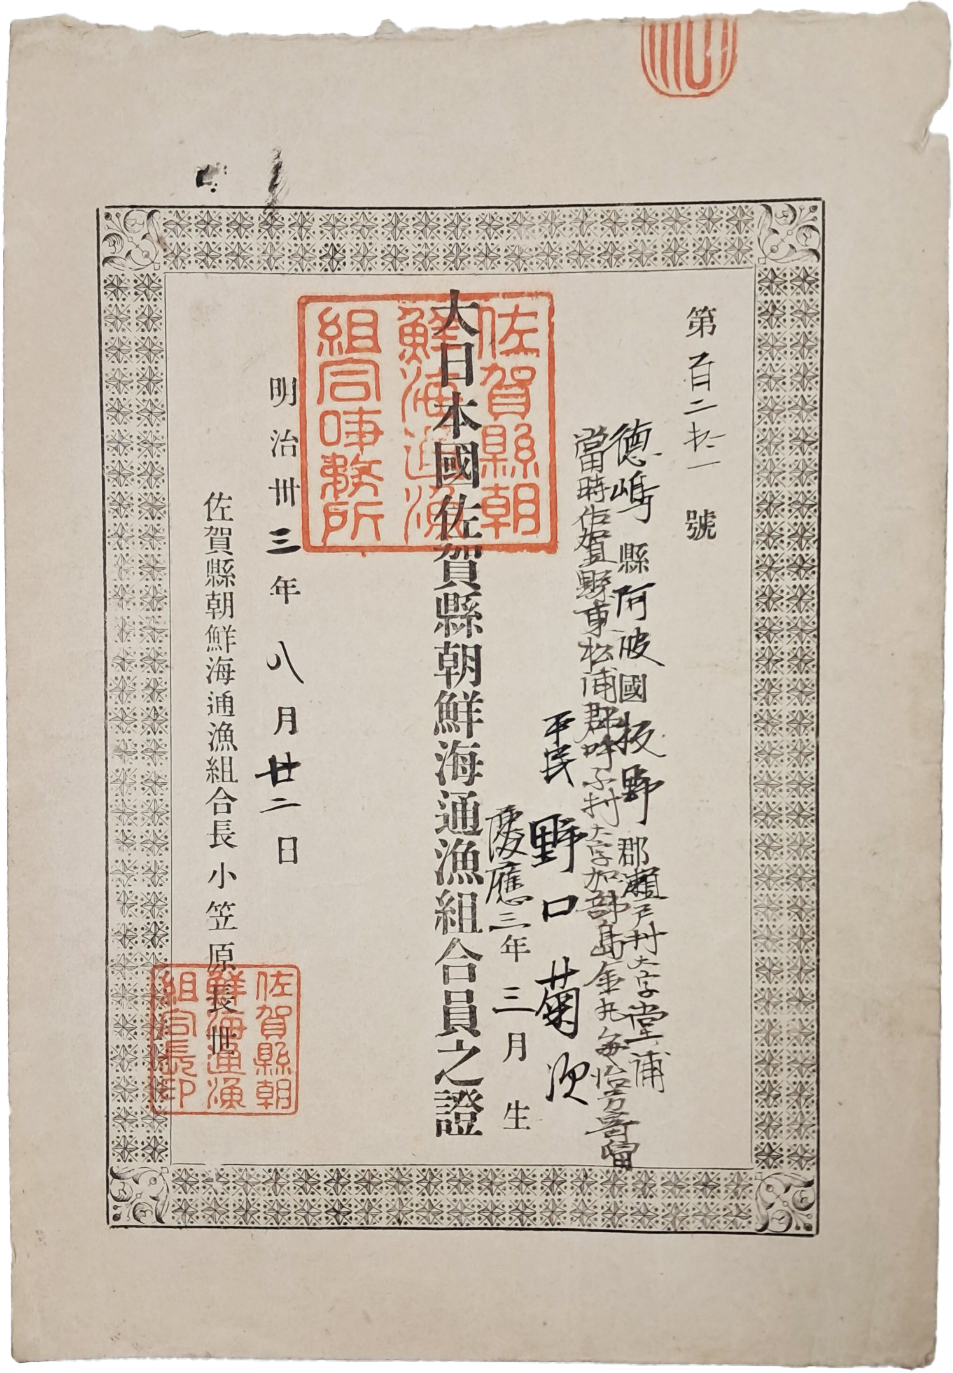 第百二拾一號
德嶋縣阿波國板野郡瀬戸村大字堂浦
當時佐賀縣東松浦郡呼子村大字加部島金丸毎治方寄留
平民 野口菊次
慶應三年三月生
大日本國佐賀縣朝鮮海通漁組合員之證
明治卅三年八月廿二日
佐賀縣朝鮮海通漁組合長 小笠原長世
佐賀縣朝
鮮海通漁
組合事務所
佐賀縣朝
鮮海通漁
組合長印